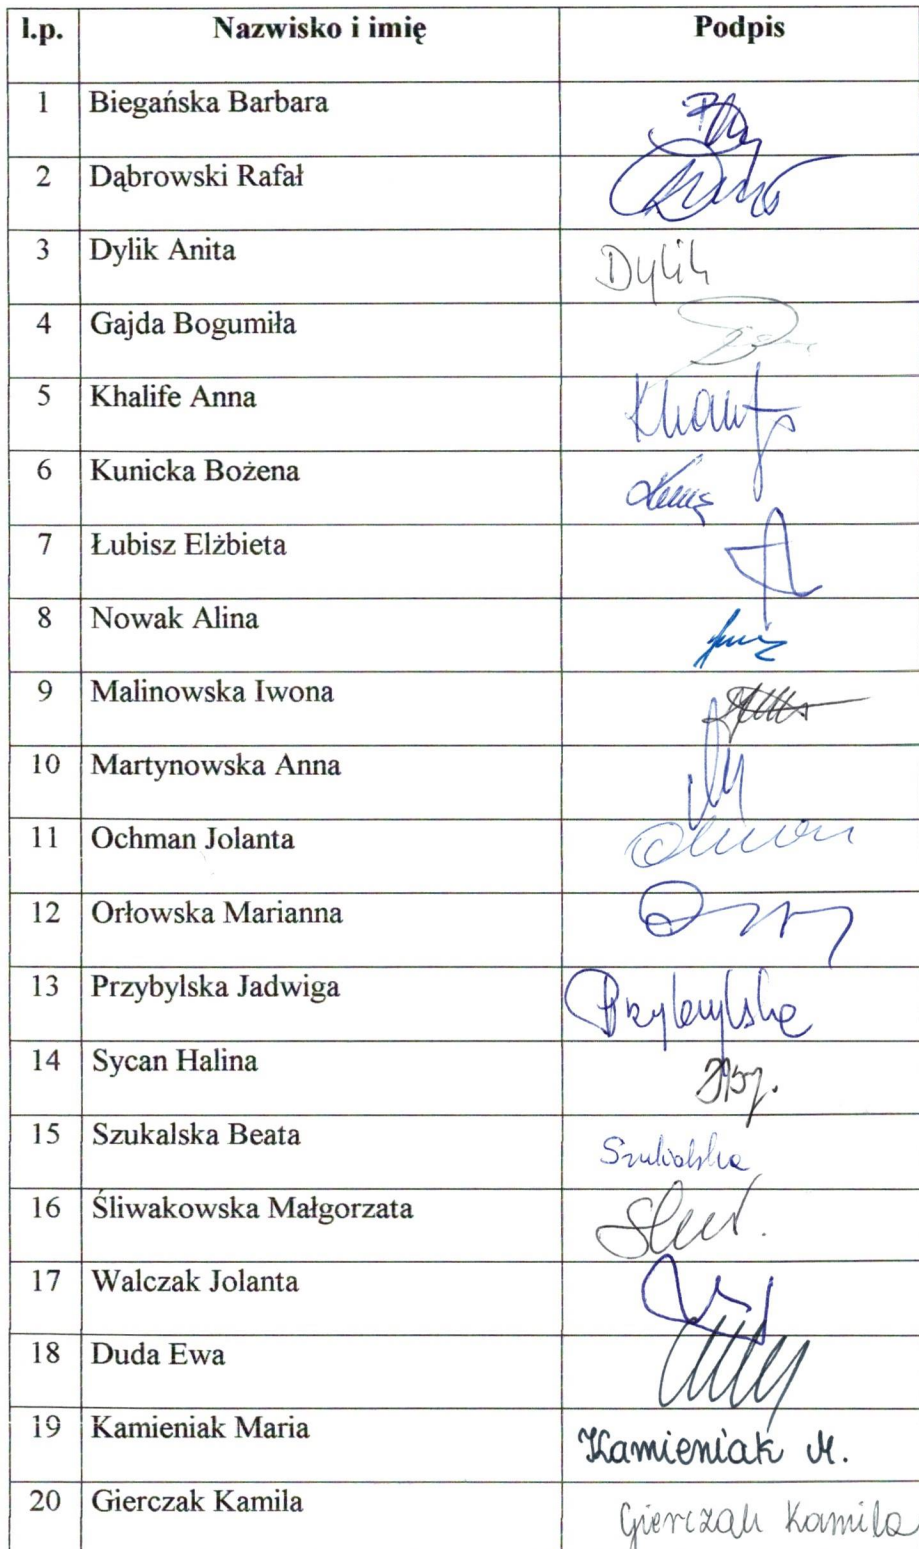 l.p. Nazwisko i imię Podpis
1 Biegańska Barbara
2 Dąbrowski Rafał
3 Dylik Anita Dylik
4 Gajda Bogumiła
5 Khalife Anna
6 Kunicka Bożena
7 Łubisz Elżbieta
8 Nowak Alina
9 Malinowska Iwona
10 Martynowska Anna
11 Ochman Jolanta
12 Orłowska Marianna
13 Przybylska Jadwiga Przybylska
14 Sycan Halina
15 Szukalska Beata Szukalska
16 Śliwakowska Małgorzata
17 Walczak Jolanta
18 Duda Ewa
19 Kamieniak Maria Kamieniak M.
20 Gierczak Kamila Gierczak Kamila